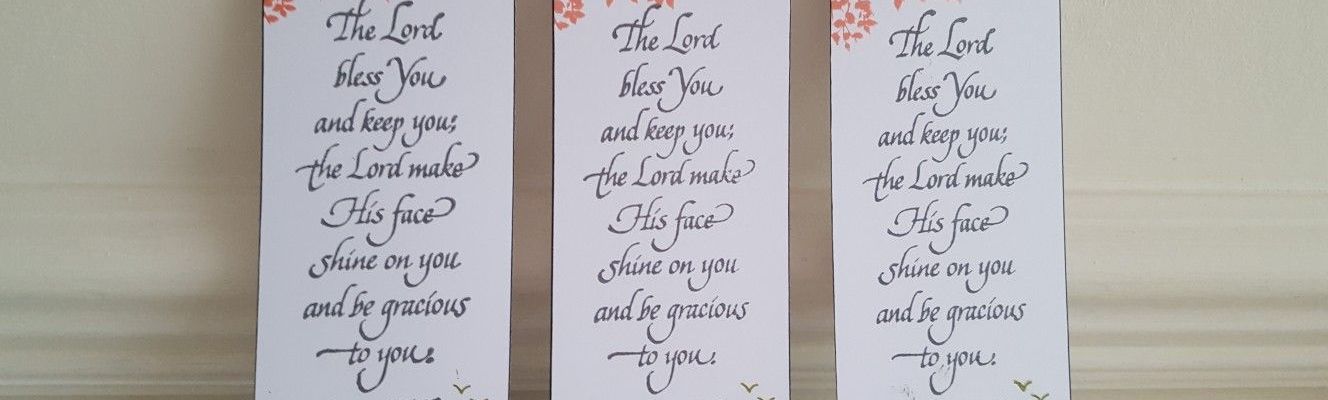 The Lord
bless You
and keep you;
the Lord make
His face
shine on you
and be gracious
to you:
The Lord
bless You
and keep you;
the Lord make
His face
shine on you
and be gracious
to you:
The Lord
bless You
and keep you;
the Lord make
His face
shine on you
and be gracious
to you: